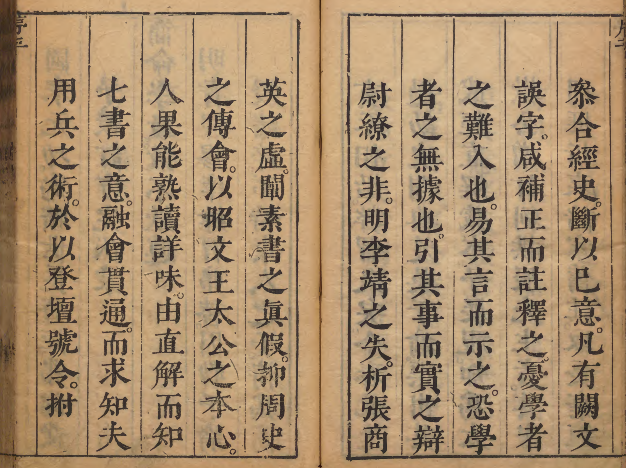 叅合經史。斷以巳意。凡有闕文
誤字。咸補正而註釋之。憂學者
之難入也。易其言而示之。恐學
者之無據也。引其事而實之辯
尉繚之非。明李靖之失。析張商
英之虛。闡素書之眞假。抑周史
之傳會。以昭文王太公之本心。
人果能熟讀詳味。由直解而知
七書之意。融會貫通。而求知夫
用兵之術。於以登壇號令。拊